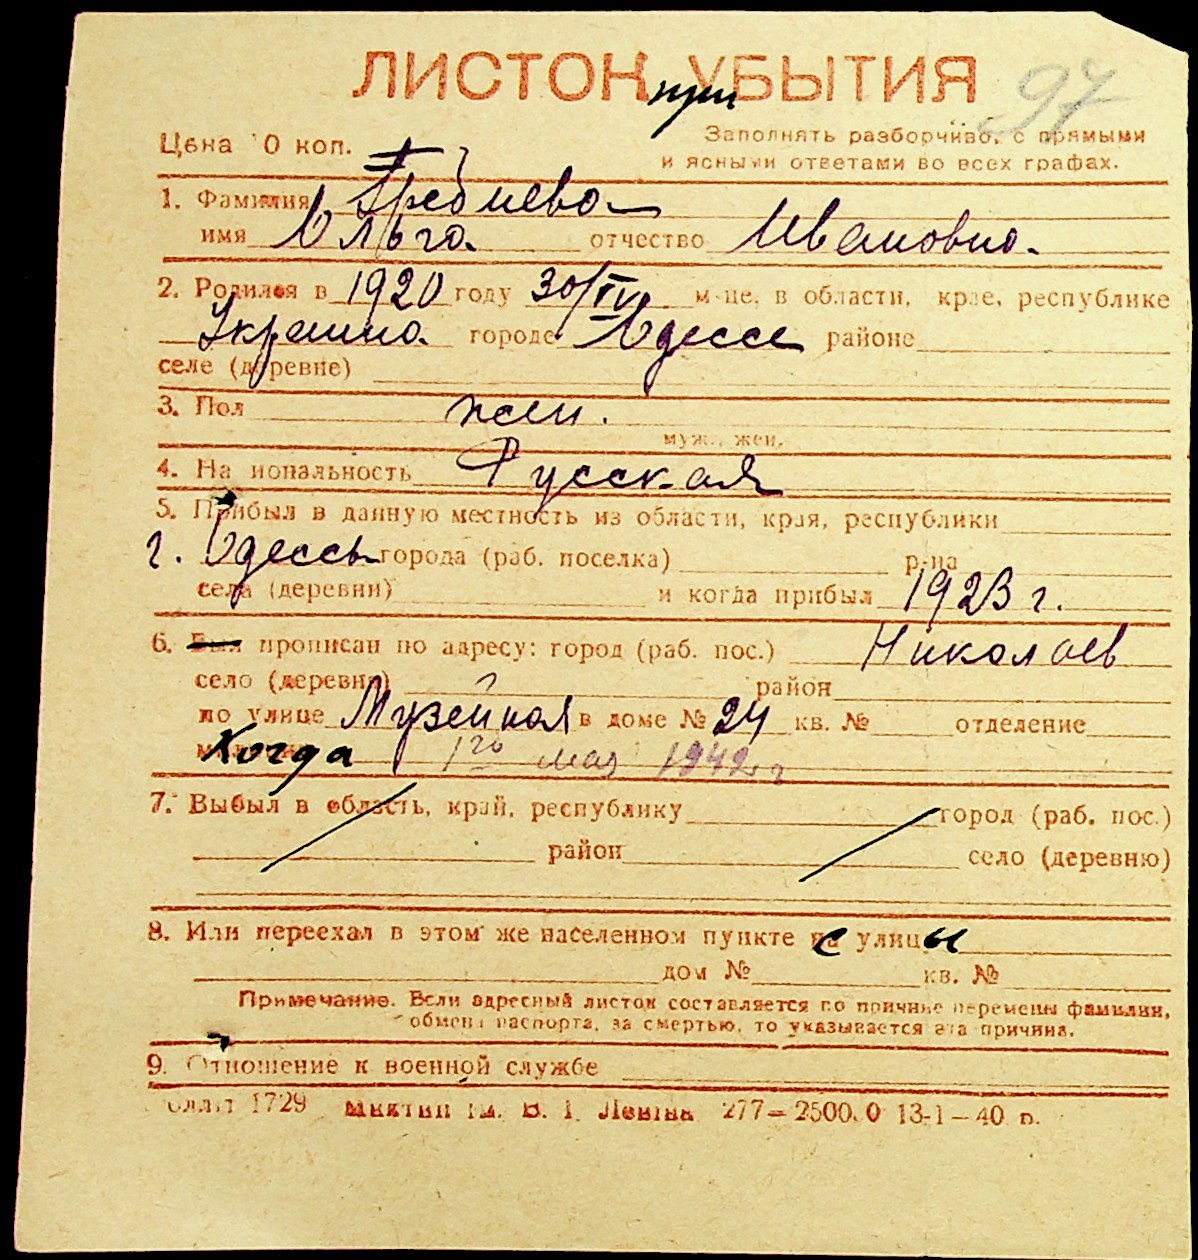 ЛИСТОК при УБЫТИЯ 97
Цена 10 коп.
Заполнять разборчиво, с прямыми
и ясными ответами во всех графах.
1. Фамилия
имя Ольга отчество Ивановна
2. Родился в 1920 году 30/IV м-це, в области, крае, республике
Украина городе Одесса районе
селе (деревне)
3. Пол жен.
муж., жен.
4. Национальность Русская
5. Прибыл в данную местность из области, края, республики
г. Одессы города (раб. поселка) р-на
села (деревни) и когда прибыл 1923 г.
6. Был прописан по адресу: город (раб. пос.) Николаев
село (деревня) район
по улице Музейная в доме № 24 кв. № отделение
Когда 1го мая 1942 г
7. Выбыл в область, край, республику город (раб. пос.)
район село (деревню)
8. Или переехал в этом же населенном пункте с улицы
дом № кв. №
Примечание. Если адресный листок составляется по причине перемены фамилии,
обмена паспорта, за смертью, то указывается эта причина.
9. Отношение к военной службе
1729 им. В. І. Леніна 277—2500.0 13-1—40 р.